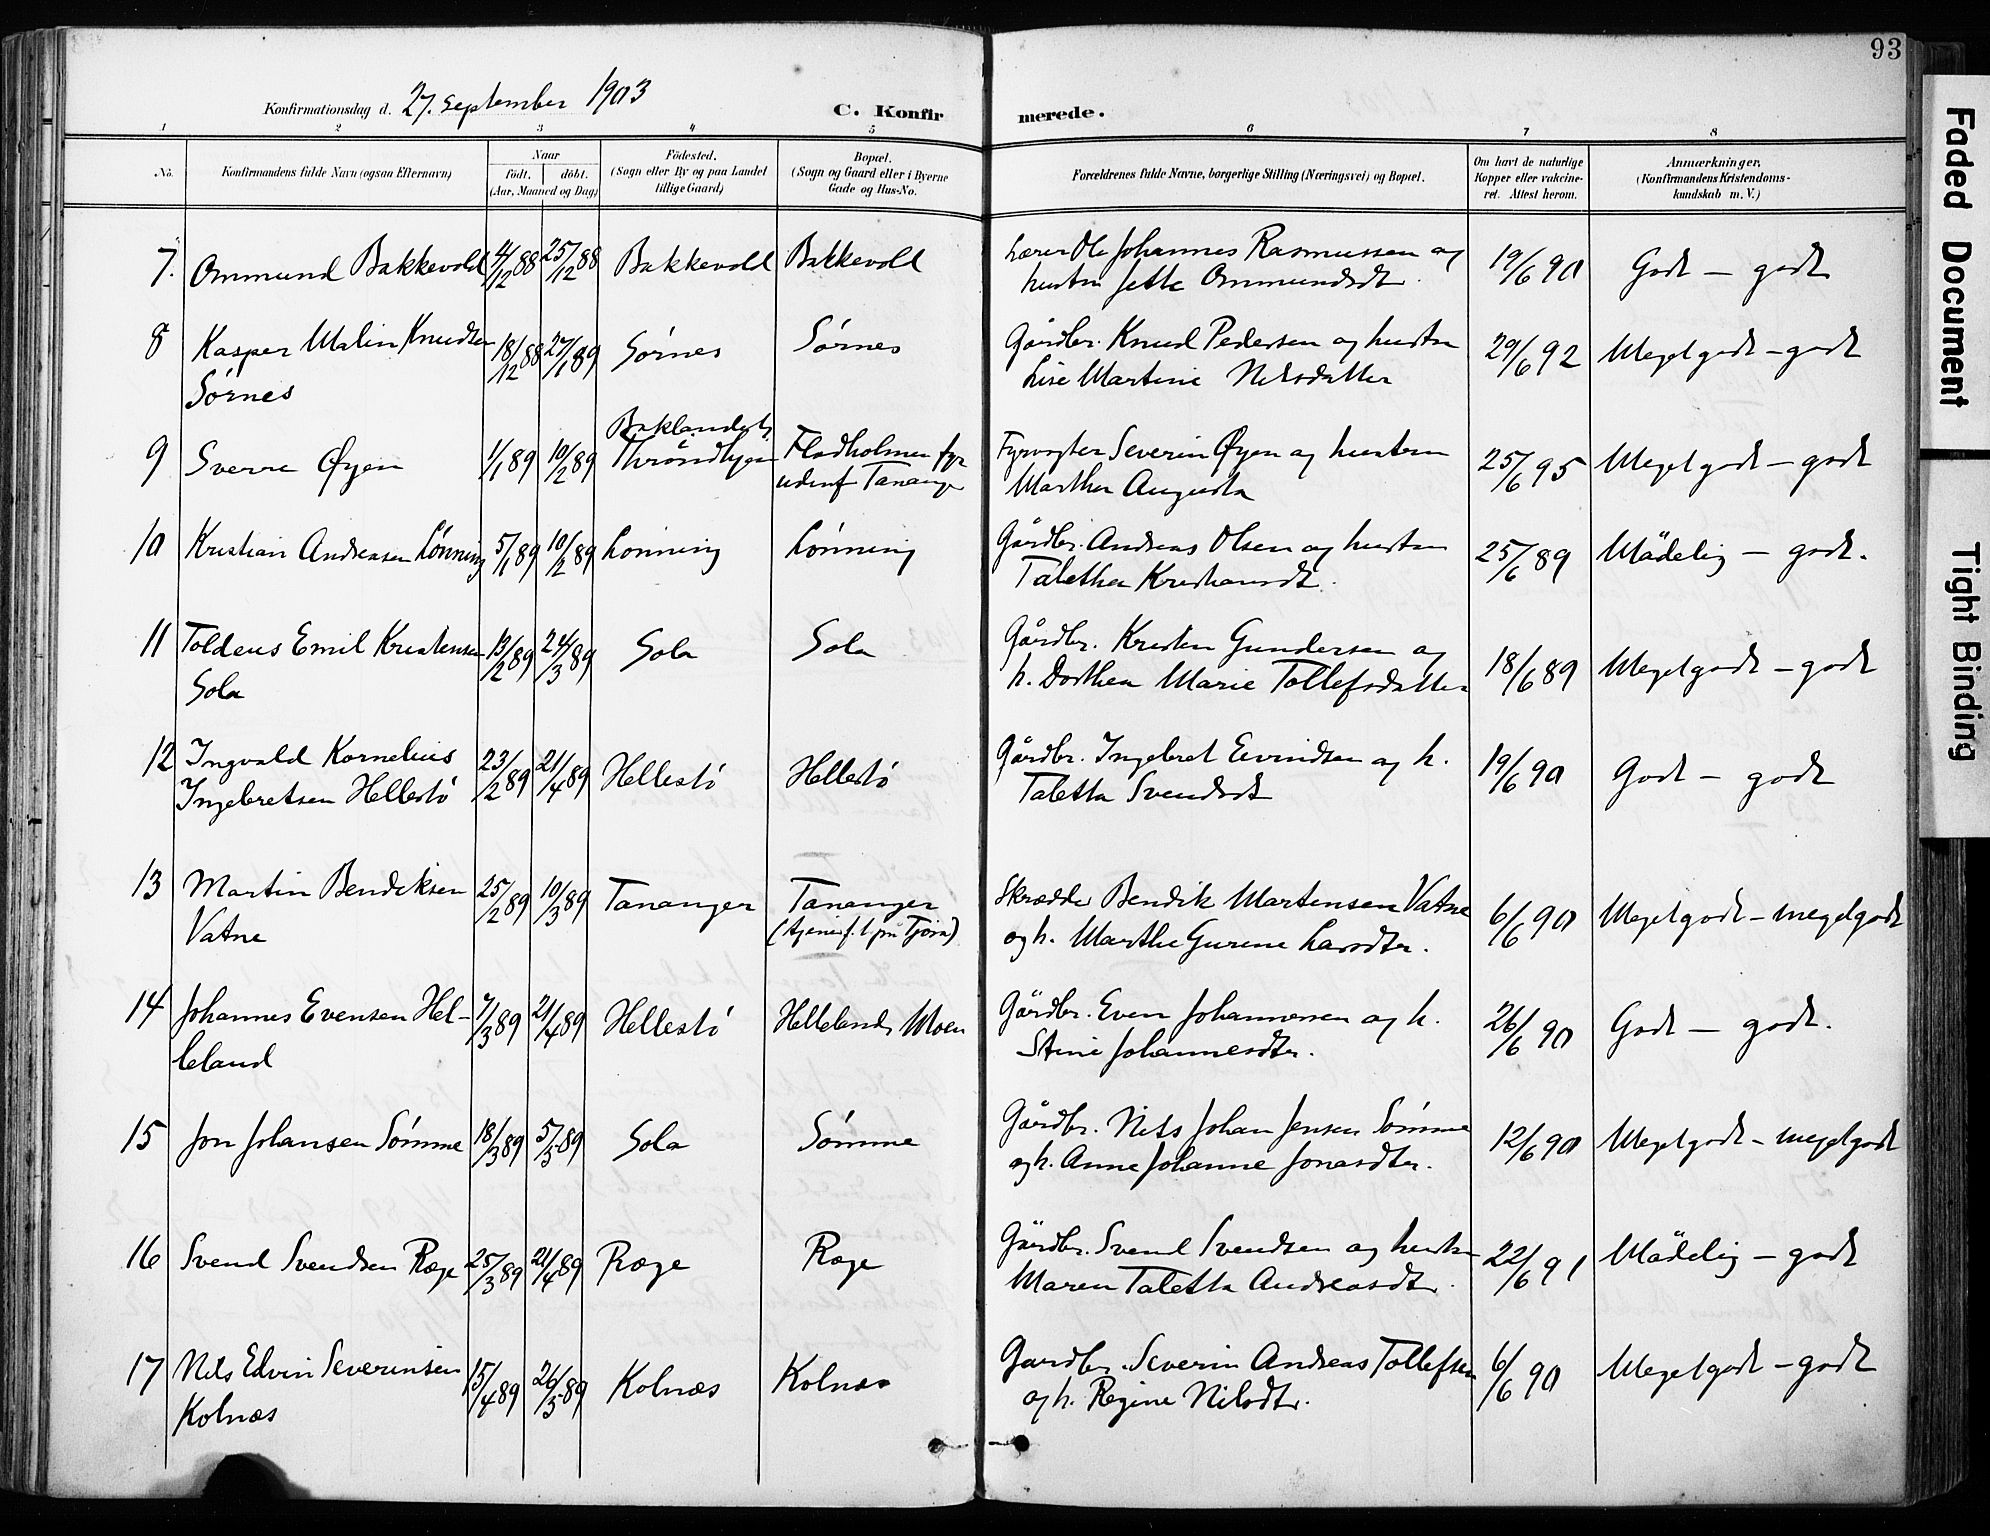 93
Konfirmationsdag d. 27. September 1903 C. Konfirmerede.
1 2 3 4 5 6 7 8
No.
Konfirmandens fulde Navn (ogsaa Efternavn)
Naar
födt. döbt.
(Aar, Maaned og Dag)
Födested.
(Sogn eller By og paa Landet
tillige Gaard)
Bopæl.
(Sogn og Gaard eller i Byerne
Gade og Hus-No.
Forældrenes fulde Navne, borgerlige Stilling (Næringsvei) og Bopæl.
Om havt de naturlige
Kopper eller vakcine-
ret. Attest herom.
Anmærkninger.
(Konfirmandens Kristendoms-
kundskab m. V.)
7. Ommund Bakkevold 4/12 88 25/12 88 Bakkevold Bakkevold Lærer Ole Johannes Rasmussen og 19/6 90 Godt – godt
hustru Jette Ommundsdt.
8 Kasper Malin Knudsen 18/12 88 27/1 89 Sørnes Sørnes Gårdbr. Knud Pedersen og hustru 29/6 92 Megetgodt – godt
Sørnes Lise Martine Nilsdatter
9 Sverre Øyen 1/1 89 10/2 89 Baklandet,
Throndhjem Fladholmen fyr Fyrvogter Severin Øyen og hustru 25/6 95 Megetgodt – godt
udenf Tananger Marthe Augusta
10 Kristian Andreasen Lönning 5/1 89 10/2 89 Lönning Lönning Gårdbr. Andreas Olsen og hustru 25/6 89 Mådelig – godt.
Talethea Kristiansdt.
11 Toldeus Emil Kristensen 13/2 89 24/3 89 Sola Sola Gårdbr. Kristen Gundersen og 18/6 89 Megetgodt – godt
Sola h. Dorthea Marie Tollefsdatter
12 Ingvald Kornelius 23/2 89 21/4 89 Hellestö Hellestö Gårdbr. Ingebret Eivindsen og h. 19/6 90 Godt – godt
Ingebretsen Hellestö Taletta Svendsdt
13 Martin Bendiksen 25/2 89 10/3 89 Tananger Tananger Skrædder Bendik Martensen Vatne 6/6 90 Megetgodt – megetgodt
Vatne (tjener f. t. på Tjora) og h. Marthe Gurine Larsdtr.
14 Johannes Evensen Hel- 7/3 89 21/4 89 Hellestö Hellelands Moen Gårdbr. Even Johannesen og h. 26/6 90 Godt – godt.
leland Stine Johannesdtr.
15 Jon Johansen Sömme 18/3 89 5/5 89 Sola Sömme Gårdbr. Nils Johan Jensen Sömme 12/6 90 Megetgodt – megetgodt
og h. Anne Johanne Jonasdtr.
16 Svend Svendsen Ræge 25/3 89 21/4 89 Ræge Ræge Gårdbr. Svend Svendsen og hustru 22/6 91 Mådelig – godt
Maren Taletta Andreasdt.
17 Nils Edvin Severinsen 15/4 89 26/5 89 Kolnæs Kolnæs Gardbr. Severin Andreas Tollefsen 6/6 90 Megetgodt – godt
Kolnæs og h. Regine Nilsdtr.
Faded Document
Tight Binding